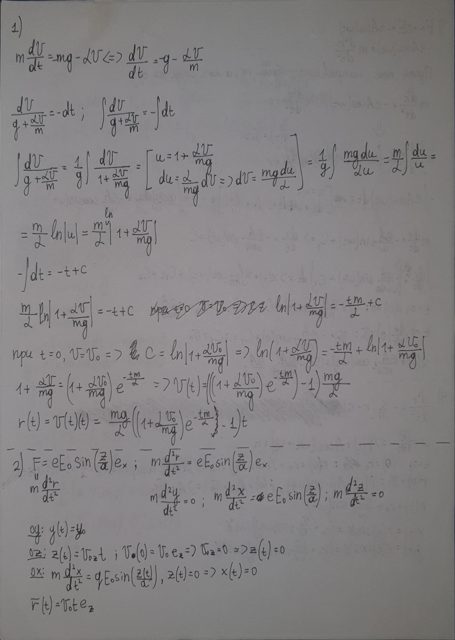 1)
m dV/dt = mg - αV <=> dV/dt = -g - αV/m
dV/(g + αV/m) = -dt ; ∫ dV/(g + αV/m) = -∫dt
∫ dV/(g + αV/m) = 1/g ∫ dV/(1 + αV/mg) = [u = 1 + αV/mg, du = α/mg dV => dV = mg du/α] = 1/g ∫ mg du/αu = m/α ∫ du/u =
= m/α ln|u| = m/α ln|1 + αV/mg|
-∫dt = -t + C
m/α ln|1 + αV/mg| = -t + C ln|1 + αV/mg| = -tm/α + C
при t=0, V=V₀ => C = ln|1 + αV₀/mg| => ln(1 + αV/mg) = -tm/α + ln|1 + αV₀/mg|
1 + αV/mg = (1 + αV₀/mg) e^(-tm/α) => V(t) = ((1 + αV₀/mg) e^(-tm/α) - 1) mg/α
r(t) = V(t)(t) = mg/α ((1 + αV₀/mg) e^(-tm/α) - 1)t
2) F̄ = eE₀ sin(z/a) ēₓ ; m d²r/dt² = eE₀ sin(z/a) eₓ
m d²r/dt²
m d²y/dt² = 0 ; m d²x/dt² = eE₀ sin(z/a) ; m d²z/dt² = 0
oy: y(t) = y₀
oz: z(t) = V₀z t ; V(0) = V₀ e_z => V₀z = 0 => z(t) = 0
ox: m d²x/dt² = qE₀ sin(z(t)/a), z(t) = 0 => x(t) = 0
r̄(t) = V₀t e_z